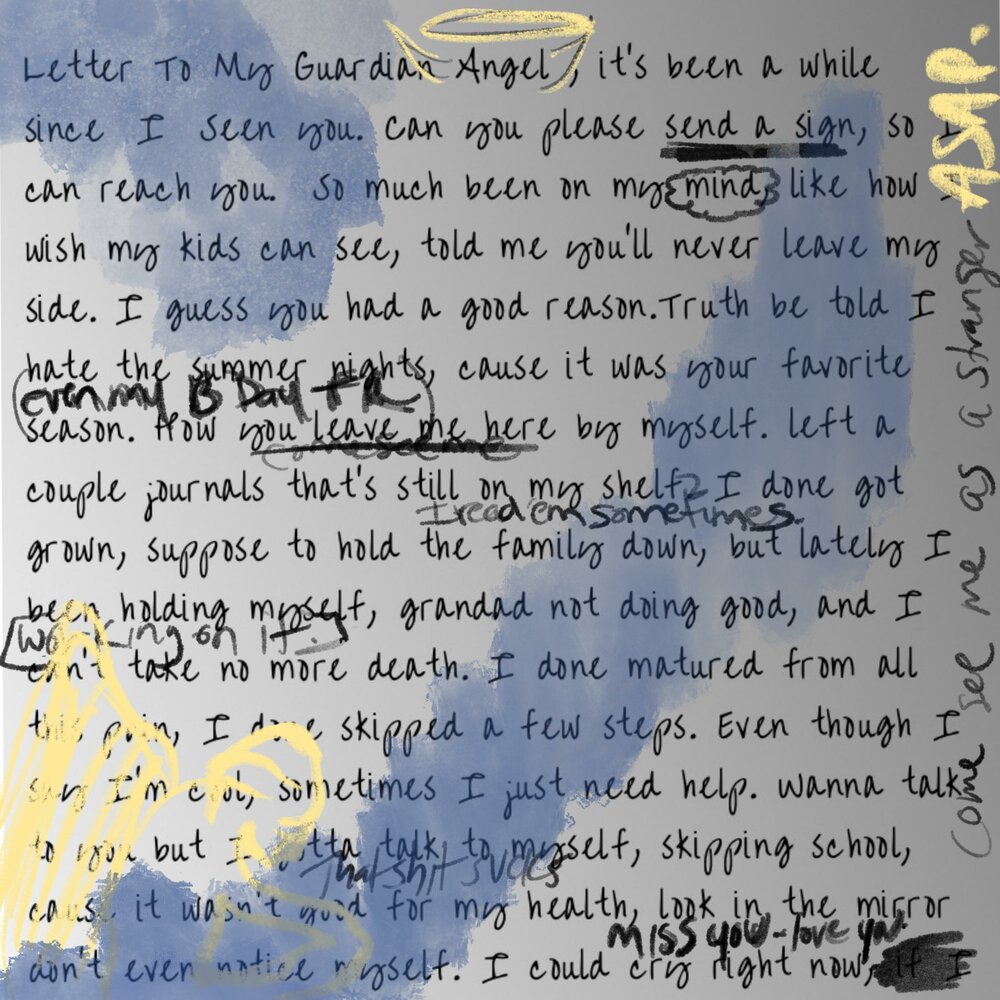 Letter To My Guardian Angel, it's been a while
since I seen you. Can you please send a sign, so I
can reach you. So much been on my mind, like how I
wish my kids can see, told me you'll never leave my
side. I guess you had a good reason. Truth be told I
hate the summer nights, cause it was your favorite
even my B Day
season. How you leave me here by myself. left a
come see me
couple journals that's still on my shelf? I done got
I read em sometimes.
grown, suppose to hold the family down, but lately I
been holding myself, grandad not doing good, and I
working on it.
can't take no more death. I done matured from all
this pain, I done skipped a few steps. Even though I
say I'm cool, sometimes I just need help. wanna talk
to you but I gotta talk to myself, skipping school,
that shit sucks
cause it wasn't good for my health, look in the mirror
miss you - love ya.
don't even notice myself. I could cry right now, if I
come see me as a stranger ASAP.